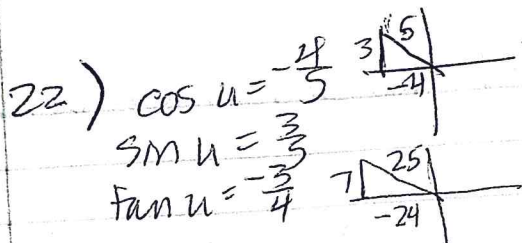 22) cos u = -4/5
3 5 -4
sin u = 3/5
tan u = -3/4
7 25 -24